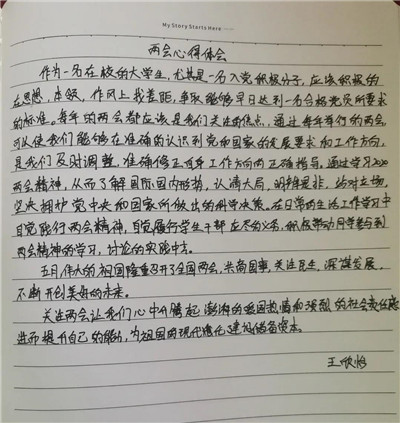 My Story Starts Here
两会心得体会
作为一名在校的大学生，尤其是一名入党积极分子，应该积极的
在思想，本领，作风上找差距，争取能够早日达到一名合格党员所要求
的标准。每年的两会都应该是我们关注的焦点，通过每年举行的两会，
可以使我们能够在准确的认识到党和国家的发展要求和工作方向，
是我们及时调整，准确修正百年工作方向的正确指导，通过学习2020
两会精神，从而了解国际国内形势，认清大局，明辨是非，站对立场，
坚决拥护党中央和国家所做出的科学决策。在日常的生活工作学习中
自觉践行两会精神，自觉履行学生干部应尽的义务，积极带动同学参与到
两会精神的学习，讨论的实践中去。
五月伟大的祖国隆重召开了全国两会，共商国事，关注民生，深谋发展，
不断开创美好的未来。
关注两会让我们心中升腾起澎湃的爱国热情和强烈的社会责任感
进而提升自己的能力，为祖国的现代化建设储备资本。
王欣怡